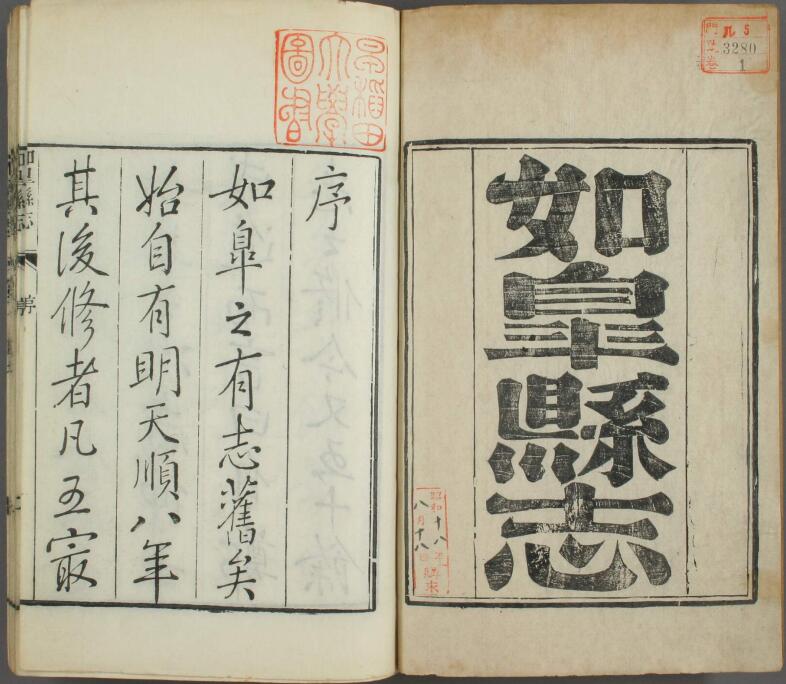 如皐縣志
門 ル 5
號 3280
卷 1
昭和十八年
八月十八日
購求
早稻田
大學
圖書
序
如皐之有志舊矣
始自有明天順八年
其後修者凡五㝡
如皐縣志
序